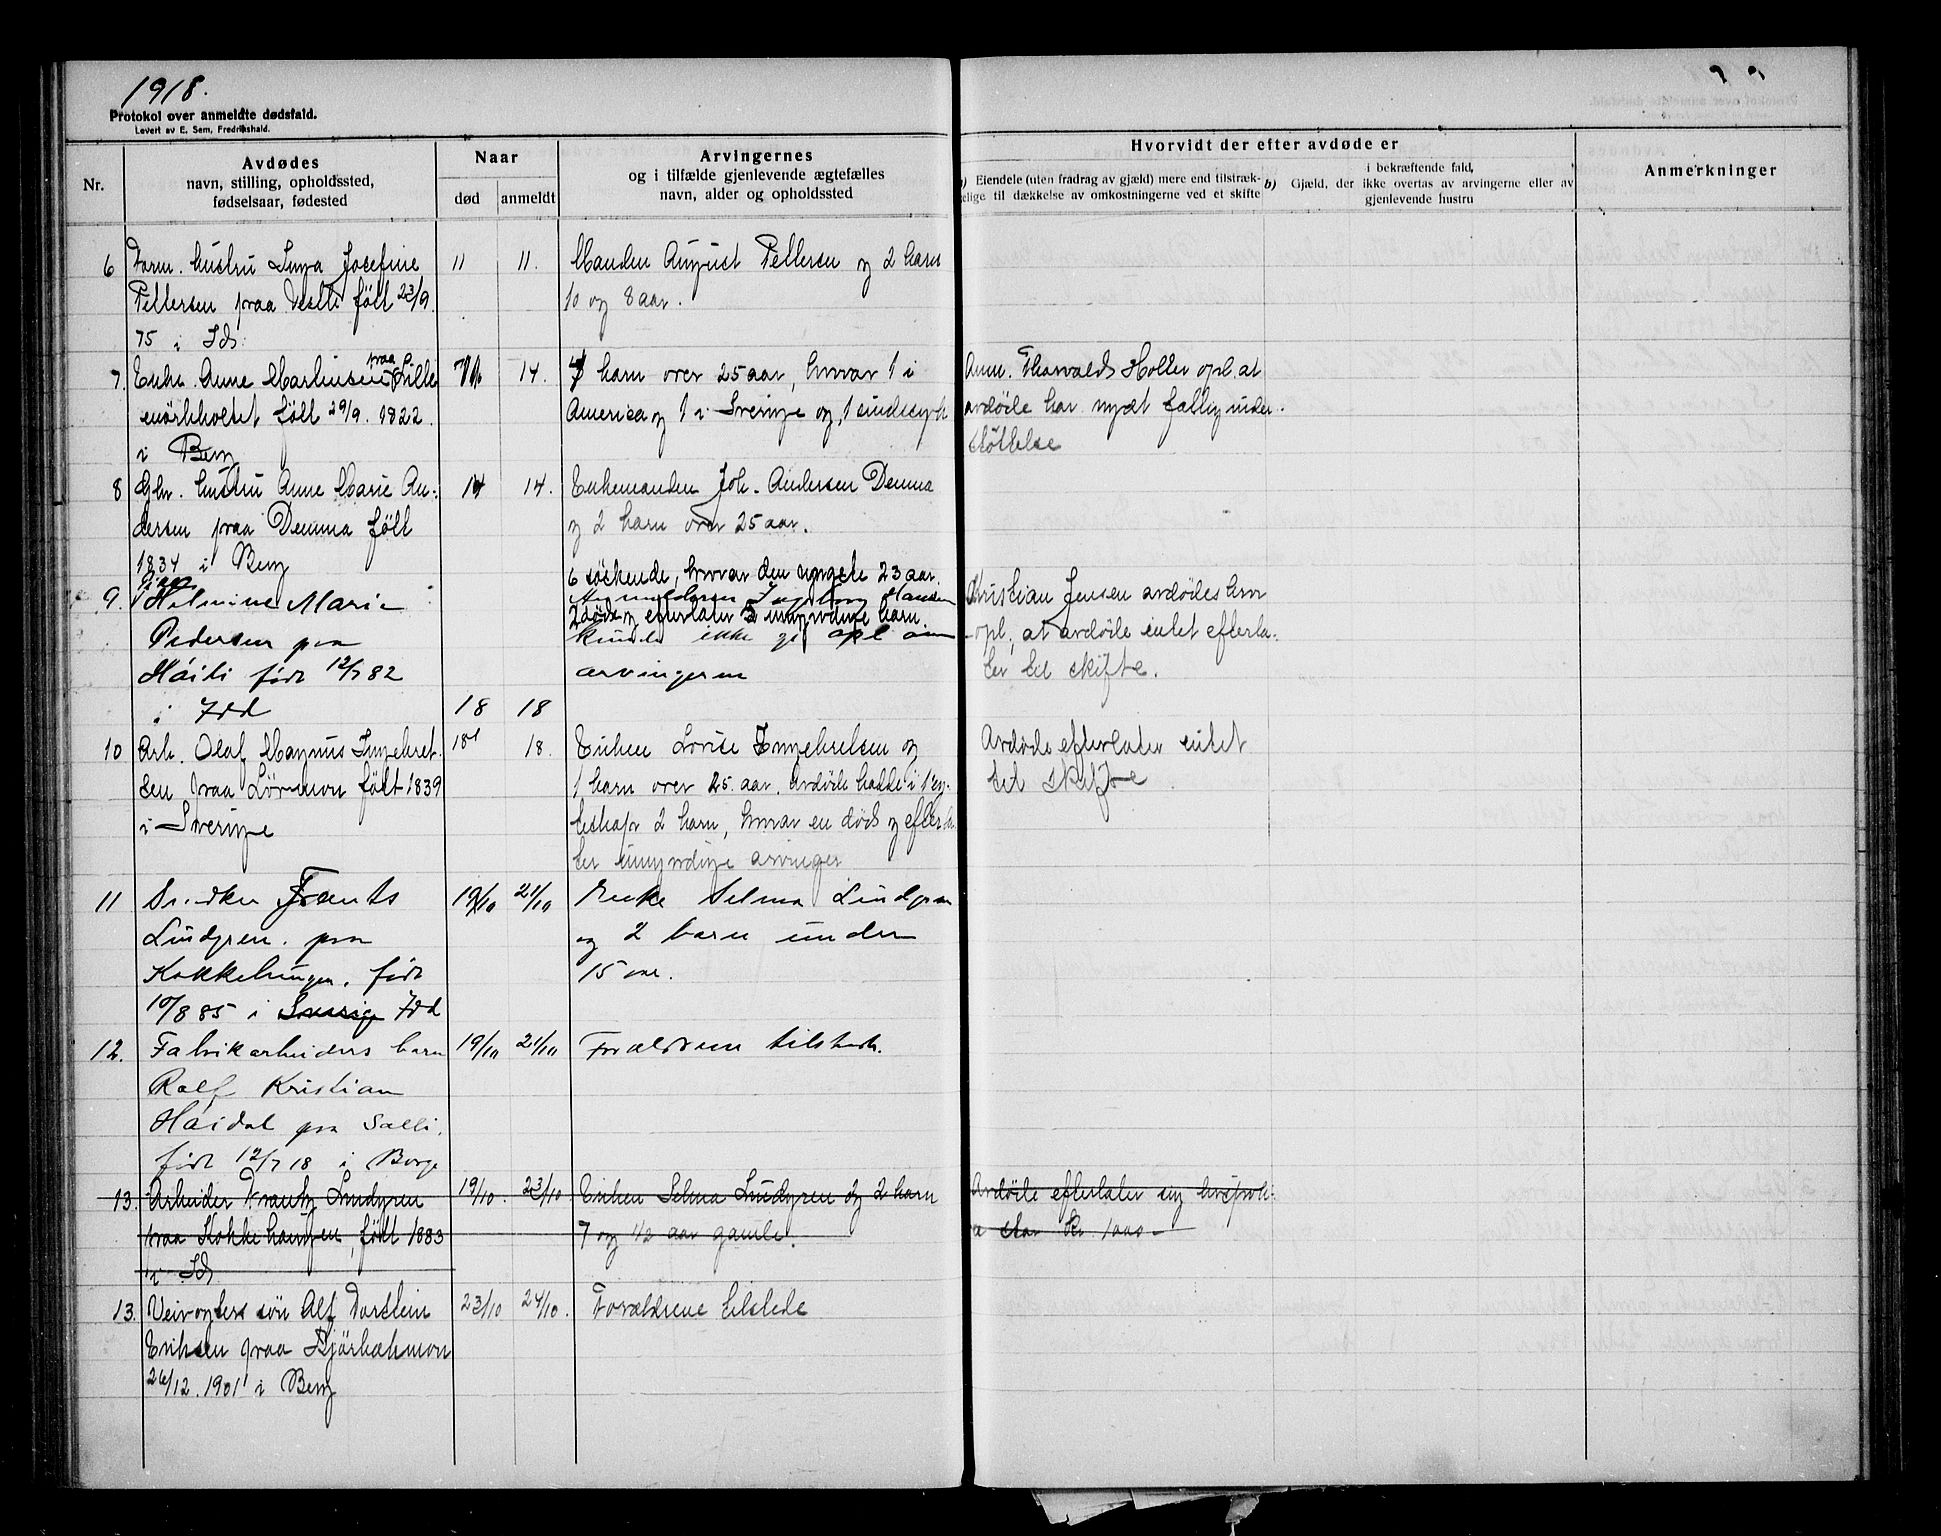 1918.
Protokol over anmeldte dødsfald.
Levert av E. Sem, Fredrikshald.
Nr.
Avdødes
navn, stilling, opholdssted,
fødselsaar, fødested
Naar
død
anmeldt
Arvingernes
og i tilfælde gjenlevende ægtefælles
navn, alder og opholdssted
Hvorvidt der efter avdøde er
a) Eiendele (uten fradrag av gjæld) mere end tilstræk-
kelige til dækkelse av omkostningerne ved et skifte
b) Gjæld, der
i bekræftende fald,
ikke overtas av arvingerne eller av
gjenlevende hustru
Anmerkninger
6 hustru Inga Josefine 11 11. Manden August Pettersen og 2 barn
Pettersen paa født 23/9 10 og 8 aar.
75 i Id.
7. Enke Anne Martinsen paa Lille 14. barn over 25 aar, hvorav 1 i Anm. Thorvald Holler opl. at
mörkholtet født 29/9. 1822. America og 1 i Sverige og 1 sindssyk avdøde har nydt fattigunder-
i Berg støttelse
8 Gbr. hustru Anne Marie An- 14 14. Enkemanden Joh. Andersen Demma
dersen paa Demma født og 2 barn over 25 aar.
1834 i Berg
6 søskende, hvorav den yngste 23 aar.
9. Pige Helmine Marie Anmelderen Ingeborg Hansen Kristian Jensen avdødes bror
2 døde og efterlater umyndige barn.
Pedersen paa kunde ikke gi opl om opl, at avdøde intet efterla-
født 12/7 82 arvingerne ter til skifte.
i Idd 18 18
10 Arb. Olaf Magnus Ingebret- 18 18. Enken Lovise Ingebretsen og Avdøde efterlater intet
sen paa Lörmon født 1839 1 barn over 25 aar. Avdøde hadde i 1 eg- til skifte
i Sverige teskap 2 barn, hvorav en død og efterla-
ter umyndige arvinger
11 Frants 19/10 21/10 Enke Selma Lindgren
Lindgren. paa og 2 barn under
Kokkehaugen. født 15 aar.
10/8 85 i Sverige Idd
12. Fabrikarbeiders barn 19/10 21/10 Forældrene tilstede.
Rolf Kristian
Høidal paa Salli.
født 12/7 18 i Borge
13. Arbeider Frantz Lindgren 19/10. 23/10 Enken Selma Lindgren og 2 barn Avdøde efterlater sig
paa Kokkehaugen, født 1883 7 og 1/2 aar gamle. stor Kr. 1000 –
i Id
13. Veivogters søn Alf Torstein 23/10 24/10. Forældrene tilstede
Eriksen paa
26/12. 1901 i Berg